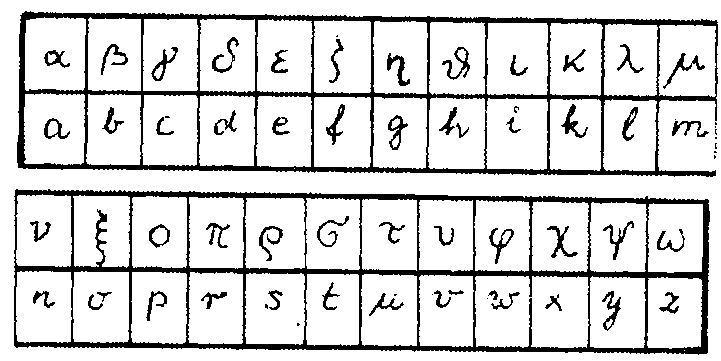 α β γ δ ε ζ η ϑ ι κ λ μ
a b c d e f g h i k l m
ν ξ ο π ρ σ τ υ φ χ ψ ω
n o p r s t u v w x y z